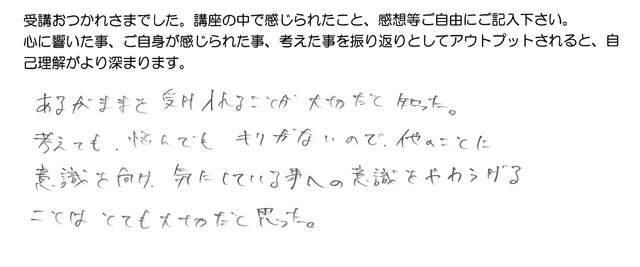 受講おつかれさまでした。講座の中で感じられたこと、感想等ご自由にご記入下さい。
心に響いた事、ご自身が感じられた事、考えた事を振り返りとしてアウトプットされると、自
己理解がより深まります。
あるがままを受け入れることが大切だと知った。
考えても、悩んでもキリがないので、他のことに
意識を向け、気にしている事への意識をやわらげる
ことはとても大切だと思った。